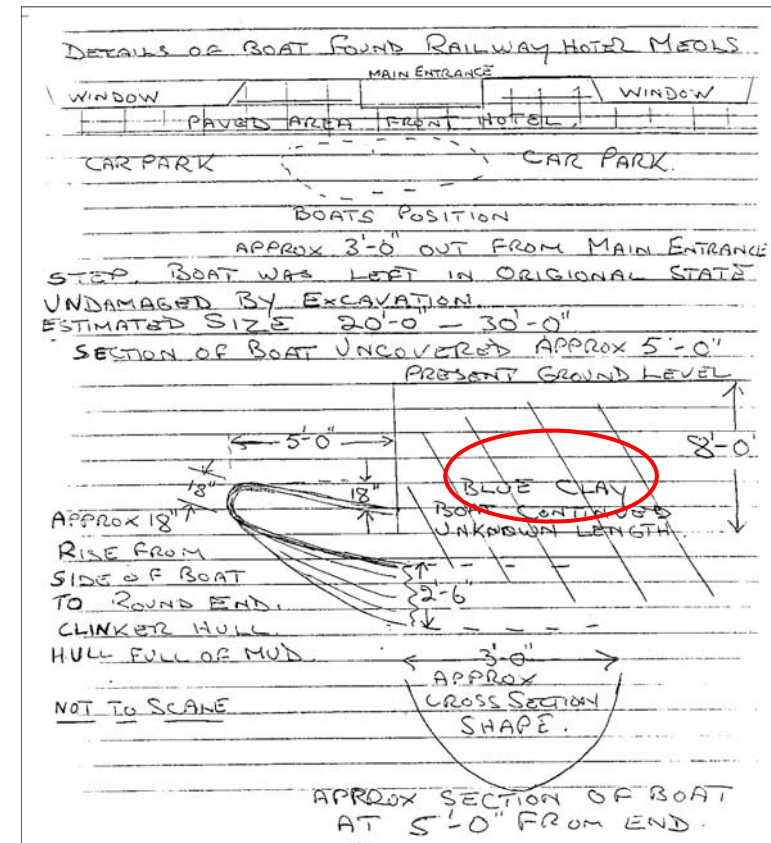 DETAILS OF BOAT FOUND RAILWAY HOTEL MEOLS
MAIN ENTRANCE
WINDOW WINDOW
PAVED AREA FRONT HOTEL.
CAR PARK CAR PARK.
BOATS POSITION
APPROX 3'-0" OUT FROM MAIN ENTRANCE
STEP. BOAT WAS LEFT IN ORIGIONAL STATE
UNDAMAGED BY EXCAVATION.
ESTIMATED SIZE 20'-0" — 30'-0"
SECTION OF BOAT UNCOVERED APPROX 5'-0"
PRESENT GROUND LEVEL
5'-0" 8'-0"
18" 18" BLUE CLAY
APPROX 18" BOAT CONTINUED
UNKNOWN LENGTH
RISE FROM
SIDE OF BOAT
TO ROUND END. 2'-6"
CLINKER HULL
HULL FULL OF MUD 3'-0"
APPROX
NOT TO SCALE CROSS SECTION
SHAPE.
APPROX SECTION OF BOAT
AT 5'-0" FROM END.